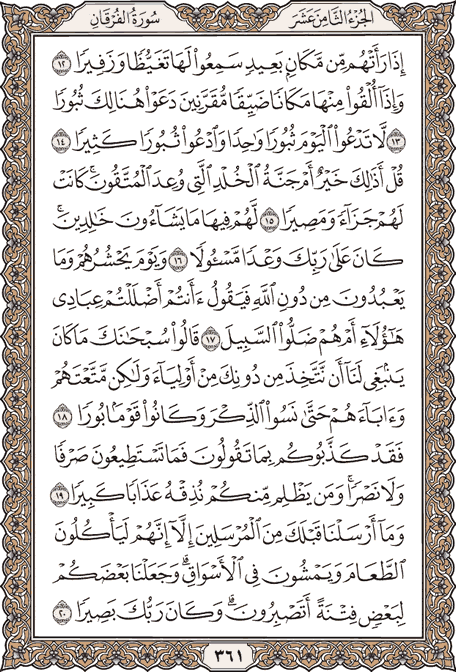 الجزء الثامن عشر
سورة الفرقان
إِذَا رَأَتْهُم مِّن مَّكَانٍ بَعِيدٍ سَمِعُوا۟ لَهَا تَغَيُّظًا وَزَفِيرًا ١٢
وَإِذَآ أُلْقُوا۟ مِنْهَا مَكَانًا ضَيِّقًا مُّقَرَّنِينَ دَعَوْا۟ هُنَالِكَ ثُبُورًا
١٣ لَّا تَدْعُوا۟ ٱلْيَوْمَ ثُبُورًا وَٰحِدًا وَٱدْعُوا۟ ثُبُورًا كَثِيرًا ١٤
قُلْ أَذَٰلِكَ خَيْرٌ أَمْ جَنَّةُ ٱلْخُلْدِ ٱلَّتِى وُعِدَ ٱلْمُتَّقُونَ ۚ كَانَتْ
لَهُمْ جَزَآءً وَمَصِيرًا ١٥ لَّهُمْ فِيهَا مَا يَشَآءُونَ خَٰلِدِينَ ۚ
كَانَ عَلَىٰ رَبِّكَ وَعْدًا مَّسْـُٔولًا ١٦ وَيَوْمَ يَحْشُرُهُمْ وَمَا
يَعْبُدُونَ مِن دُونِ ٱللَّهِ فَيَقُولُ ءَأَنتُمْ أَضْلَلْتُمْ عِبَادِى
هَٰٓؤُلَآءِ أَمْ هُمْ ضَلُّوا۟ ٱلسَّبِيلَ ١٧ قَالُوا۟ سُبْحَٰنَكَ مَا كَانَ
يَنۢبَغِى لَنَآ أَن نَّتَّخِذَ مِن دُونِكَ مِنْ أَوْلِيَآءَ وَلَٰكِن مَّتَّعْتَهُمْ
وَءَابَآءَهُمْ حَتَّىٰ نَسُوا۟ ٱلذِّكْرَ وَكَانُوا۟ قَوْمًۢا بُورًا ١٨
فَقَدْ كَذَّبُوكُم بِمَا تَقُولُونَ فَمَا تَسْتَطِيعُونَ صَرْفًا
وَلَا نَصْرًا ۚ وَمَن يَظْلِم مِّنكُمْ نُذِقْهُ عَذَابًا كَبِيرًا ١٩
وَمَآ أَرْسَلْنَا قَبْلَكَ مِنَ ٱلْمُرْسَلِينَ إِلَّآ إِنَّهُمْ لَيَأْكُلُونَ
ٱلطَّعَامَ وَيَمْشُونَ فِى ٱلْأَسْوَاقِ ۗ وَجَعَلْنَا بَعْضَكُمْ
لِبَعْضٍ فِتْنَةً أَتَصْبِرُونَ ۗ وَكَانَ رَبُّكَ بَصِيرًا ٢٠
٣٦١